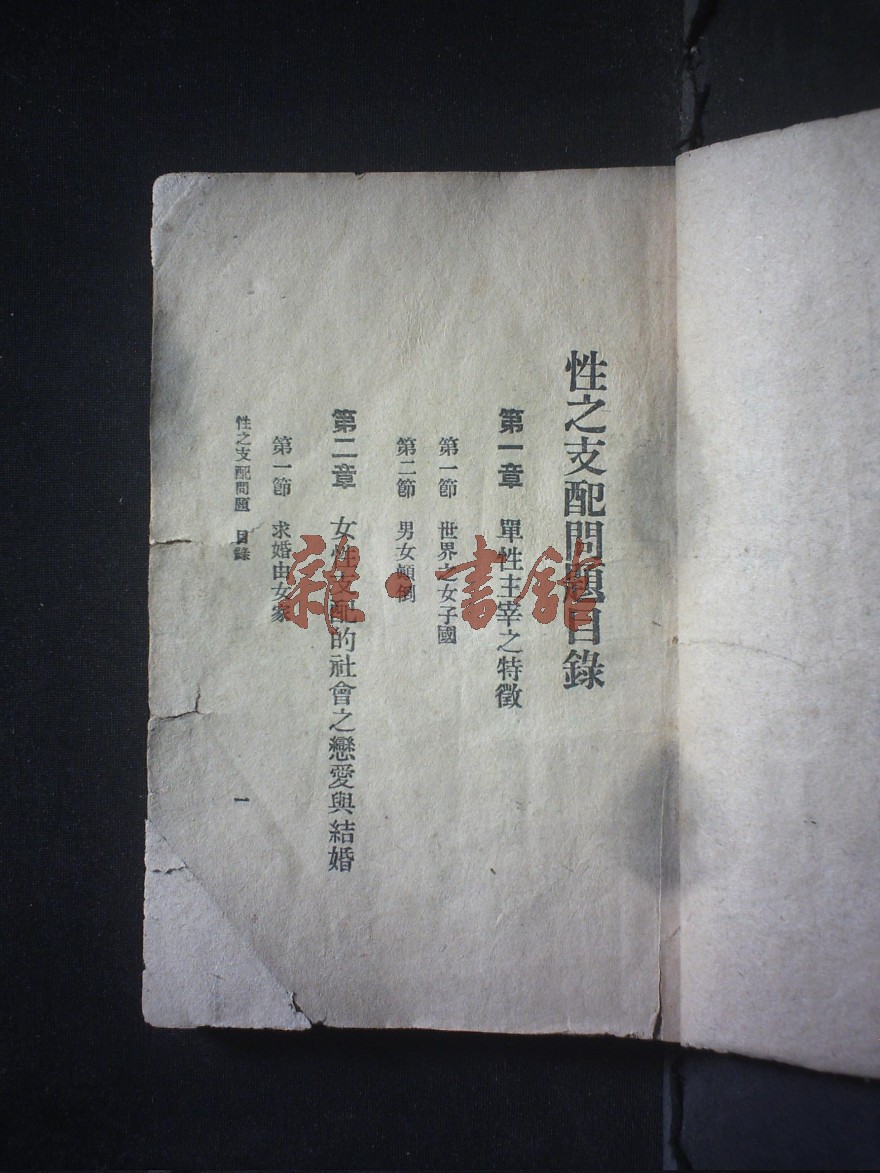 性之支配問題目錄
第一章 單性主宰之特徵
第一節 世界之女子國
第二節 男女顛倒
第二章 女性支配的社會之戀愛與結婚
第一節 求婚由女家
性之支配問題 目錄
一
雜·書館